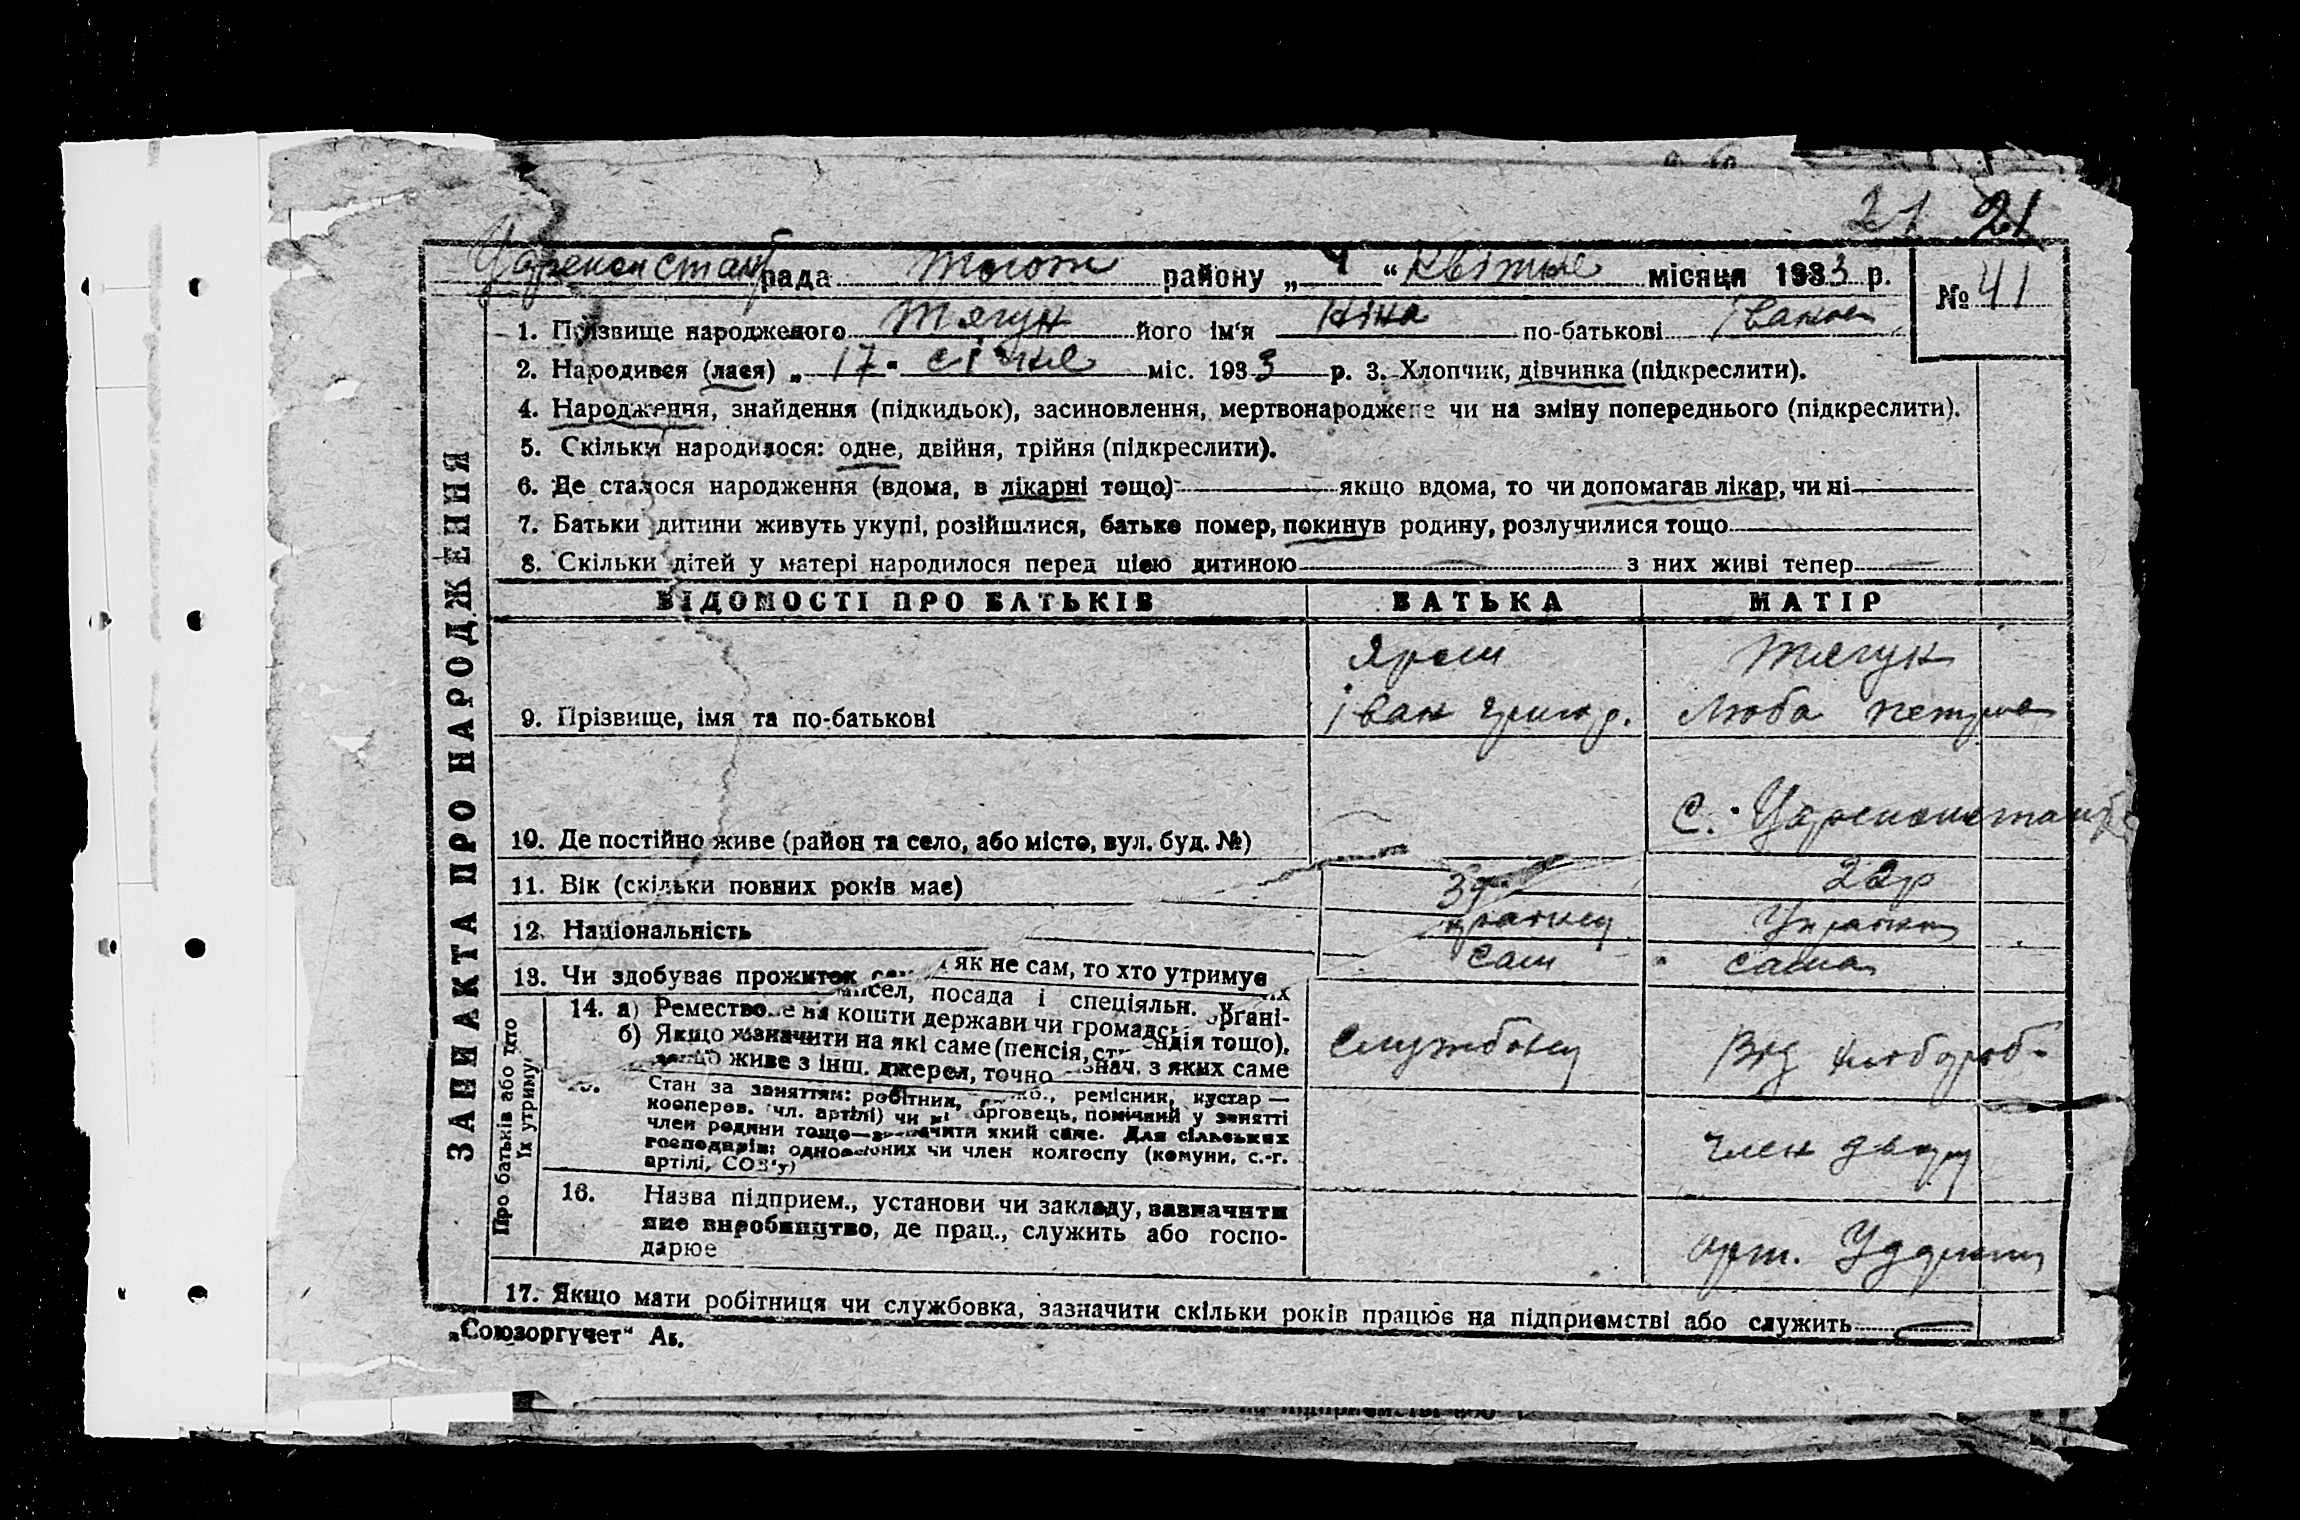 21 21
Цареконстант рада район у „ 4 “ Квітня місяця 1933 р. № 41
1. Прізвище народженого Тягун його ім'я Ніна по-батькові Іванов
2. Народився (лася) „ 17 “ січня міс. 1933 р. 3. Хлопчик, дівчинка (підкреслити).
4. Народження, знайдення (підкидьок), засиновлення, мертвонароджене чи на зміну попереднього (підкреслити).
5. Скільки народилося: одне, двійня, трійня (підкреслити).
6. Де сталося народження (вдома, в лікарні тощо) якщо вдома, то чи допомагав лікар, чи ні
7. Батьки дитини живуть укупі, розійшлися, батько помер, покинув родину, розлучилися тощо
8. Скільки дітей у матері народилося перед цією дитиною — з них живі тепер —
ЗАПИ АКТА ПРО НАРОДЖЕННЯ
ВІДОМОСТІ ПРО БАТЬКІВ БАТЬКА МАТІР
Ярош Тягун
9. Прізвище, імя та по-батькові Іван Григор. Люба Петров
10. Де постійно живе (район та село, або місто, вул. буд. №) С. Цареконстант
11. Вік (скільки повних років має) 22р
12. Національність
13. Чи здобуває прожиток як не сам, то хто утримує сам сама
Про батьків або тхто їх утримує
14. а) Ремество посада і спеціяльн. у
б) Якщо на кошти держави чи громадськ. організначити на які саме (пенсія, стипендія тощо),
якщо живе з інш. джерел, точно знач. з яких саме
Службовец
Стан за заняттям: робітник, ремісник, кустар —
кооперов. чл. артілі) чи торговець, помічний у занятті
член родини тощо—зазначити який саме. Для сільських
господарів: одноосібних чи член колгоспу (комуни, с.-г.
артілі, СОЗ'у)
член двору
16. Назва підприєм., установи чи закладу, зазначити
яке виробництво, де прац., служить або госпо-
дарює
арт. Ударник
17. Якщо мати робітниця чи службовка, зазначити скільки років працює на підприємстві або служить —
„Союзоргучет“ Ак.